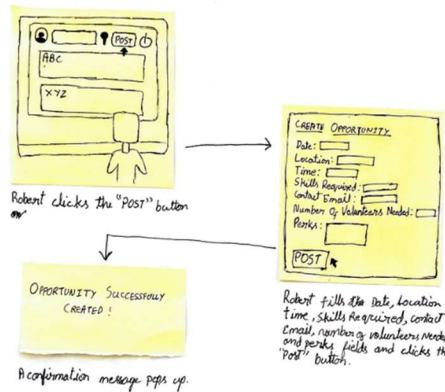 POST
ABC
XYZ
Robert clicks the "POST" button
CREATE OPPORTUNITY
Date:
Location:
Time:
Skills Required:
Contact Email:
Number Of Volunteers Needed:
Perks:
POST
Robert fills the Date, Location
time, Skills Required, contact
Email, number of volunteers Needed
and perks fields and clicks the
"Post" button.
OPPORTUNITY SUCCESSFULLY
CREATED!
A confirmation message pops up.